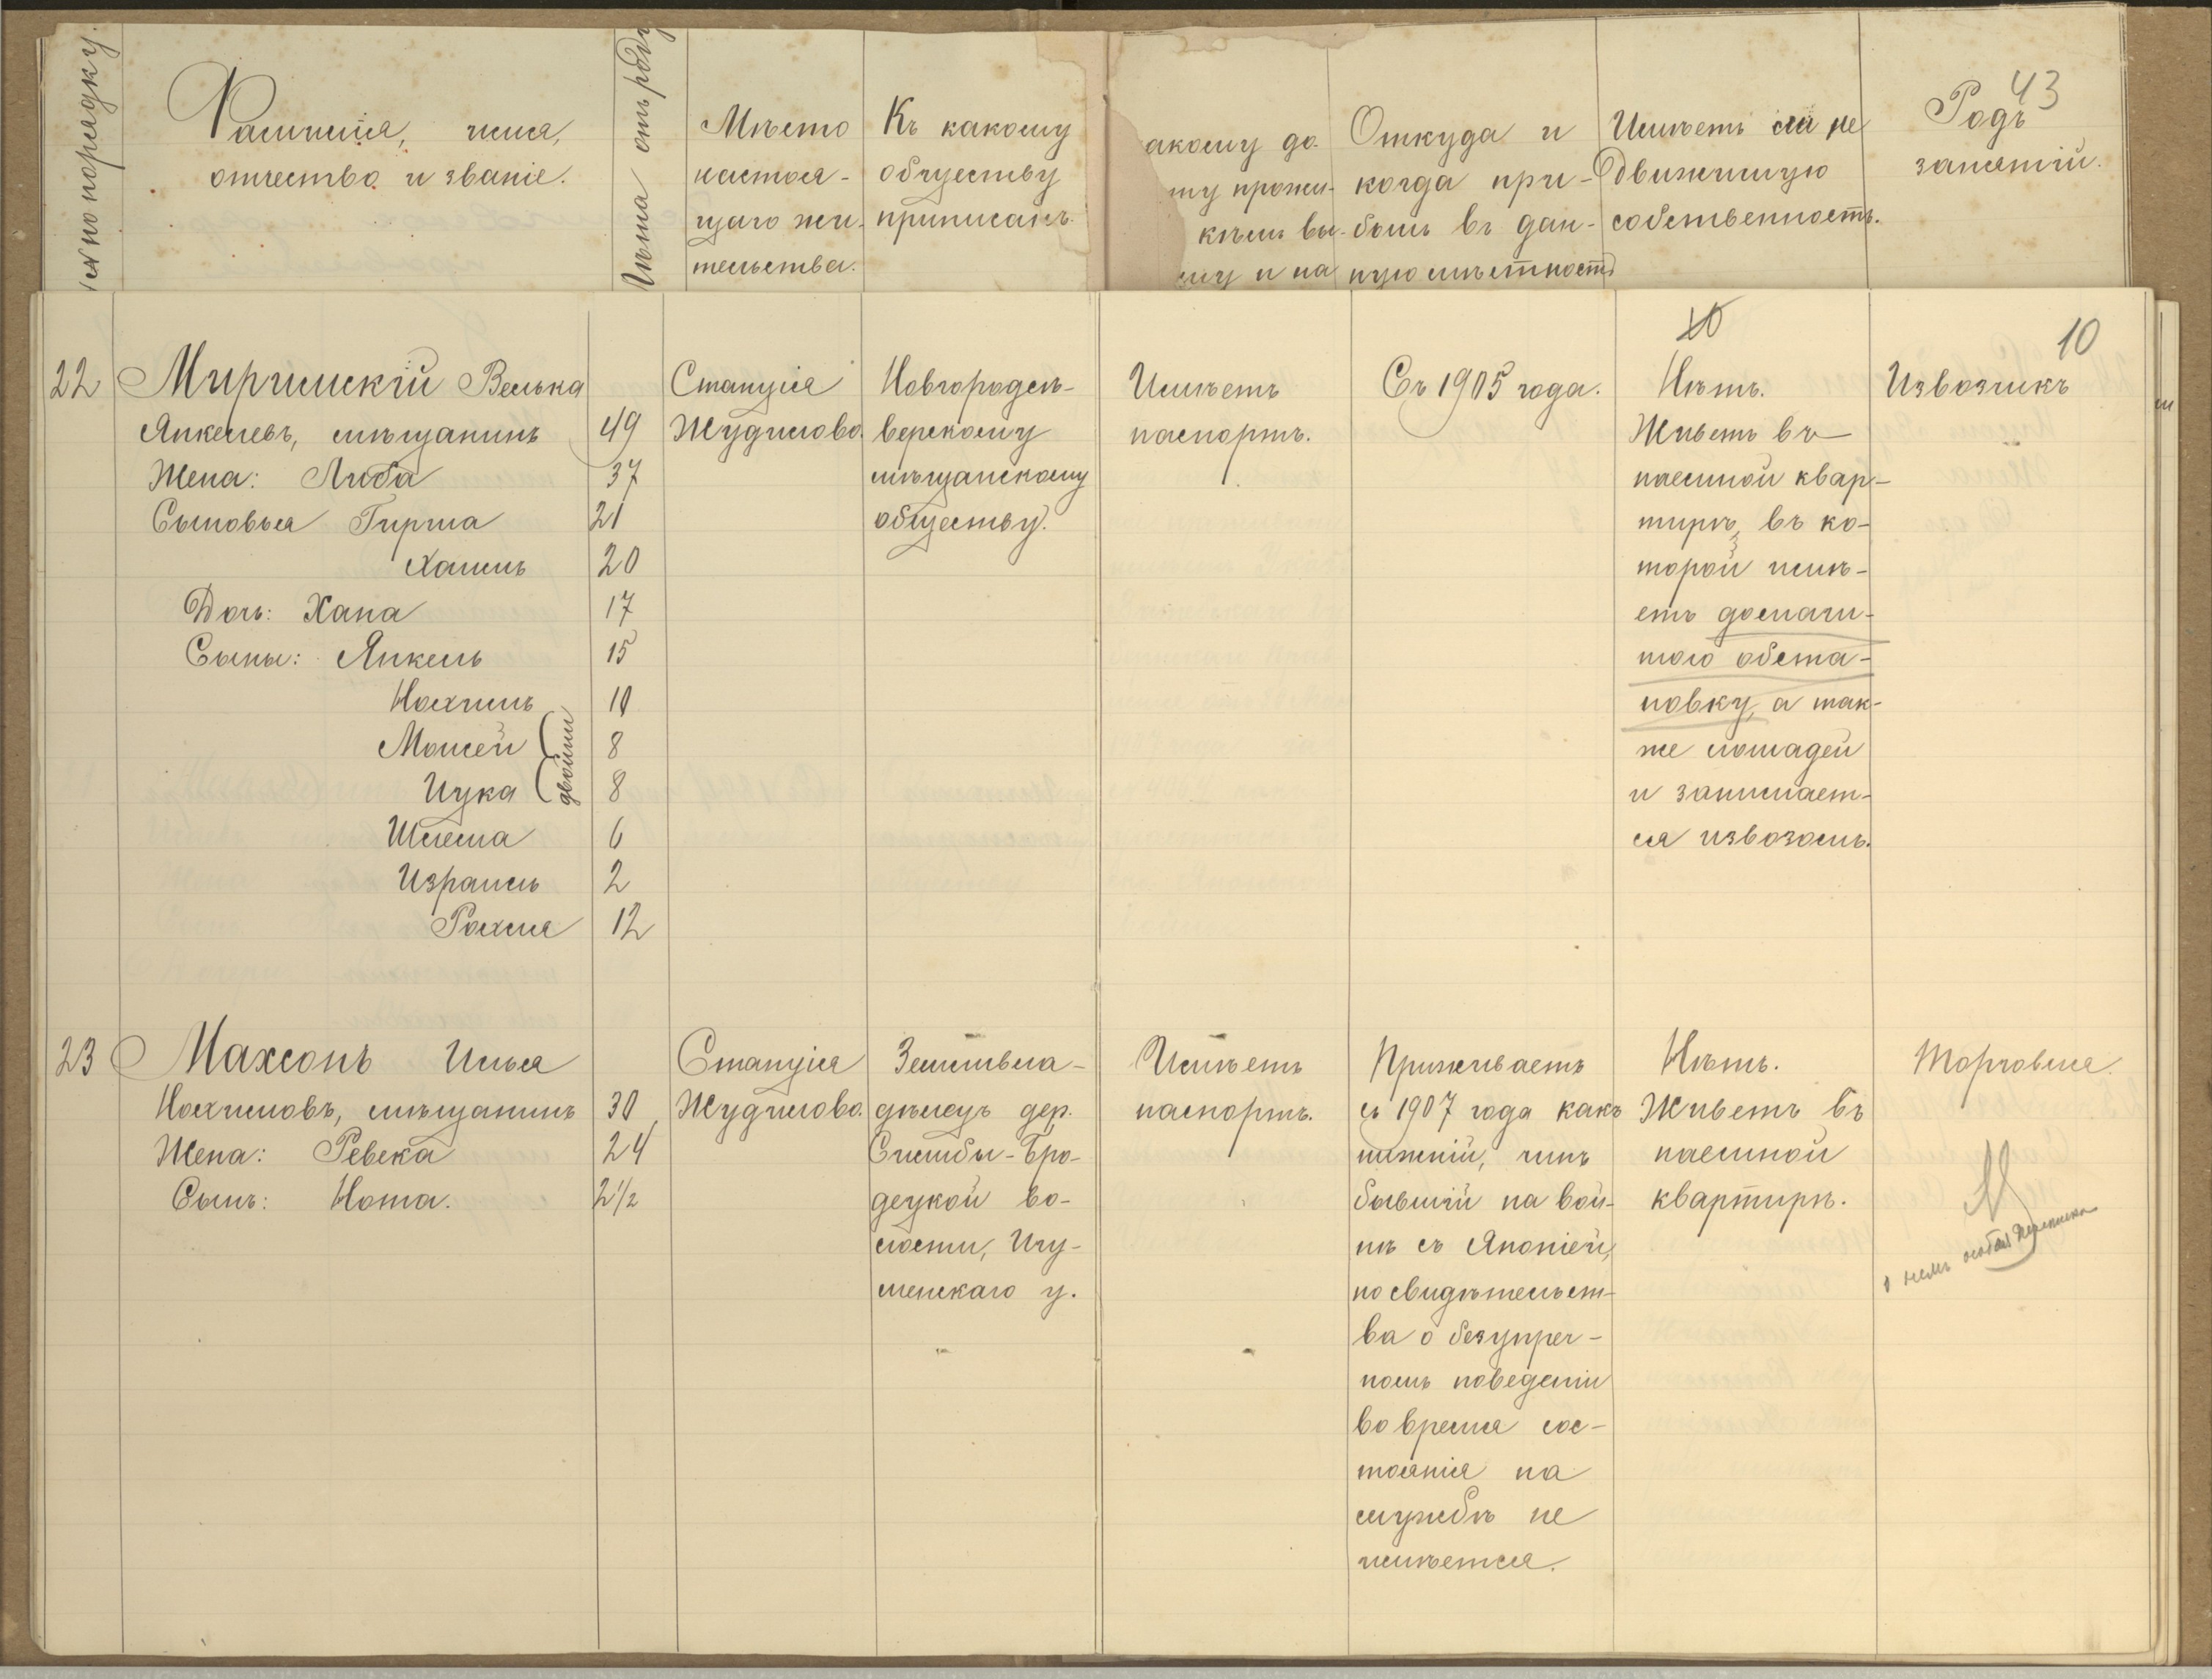 43
№ по порядку.
Фамилія, имя,
отчество и званіе.
Лѣта отъ роду
Мѣсто
настоя-
щаго жи-
тельства.
Къ какому
обществу
приписанъ.
акому до-
ту прожи-
кѣмъ вы-
му и на
Откуда и
когда при-
былъ въ дан-
ную мѣстность
Имѣетъ ли не
движимую
собственность.
Родъ
занятій.
10
10
22
Миримскій Велька
Янкелевъ, мѣщанинъ 49
Жена: Либа 37
Сыновья Гирша 21
Хаимъ 20
Дочь: Хана 17
Сыны: Янкель 15
Нохимъ 10
Моисей 8
Ицка 8
двойни
Шлема 6
Израиль 2
Рохля 12
Станція
Жудилово.
Новгородсѣ-
верскому
мѣщанскому
обществу.
Имѣетъ
паспортъ.
Съ 1905 года.
Нѣтъ.
Живетъ въ
наемной квар-
тирѣ, въ ко-
торой имѣ-
етъ домашн-
юю обста-
новку, а так-
же лошадей
и занимает-
ся извозомъ.
Извозчикъ
23
Махсонъ Илья
Нохимовъ, мѣщанинъ 30
Жена: Ревека 24
Сынъ: Нота. 2½
Станція
Жудилово.
Землевла-
дѣлецъ дер.
Слободы-Бро-
децкой во-
лости, Игу-
менскаго у.
Имѣетъ
паспортъ.
Проживаетъ
съ 1907 года какъ
нижній чинъ
бывшій на вой-
нѣ съ Японіей,
но свидѣтельст-
ва о безупреч-
номъ поведеніи
во время сос-
тоянія на
службѣ не
имѣется.
Нѣтъ.
Живетъ въ
наемной
квартирѣ.
Торговля.
о немъ особая переписка